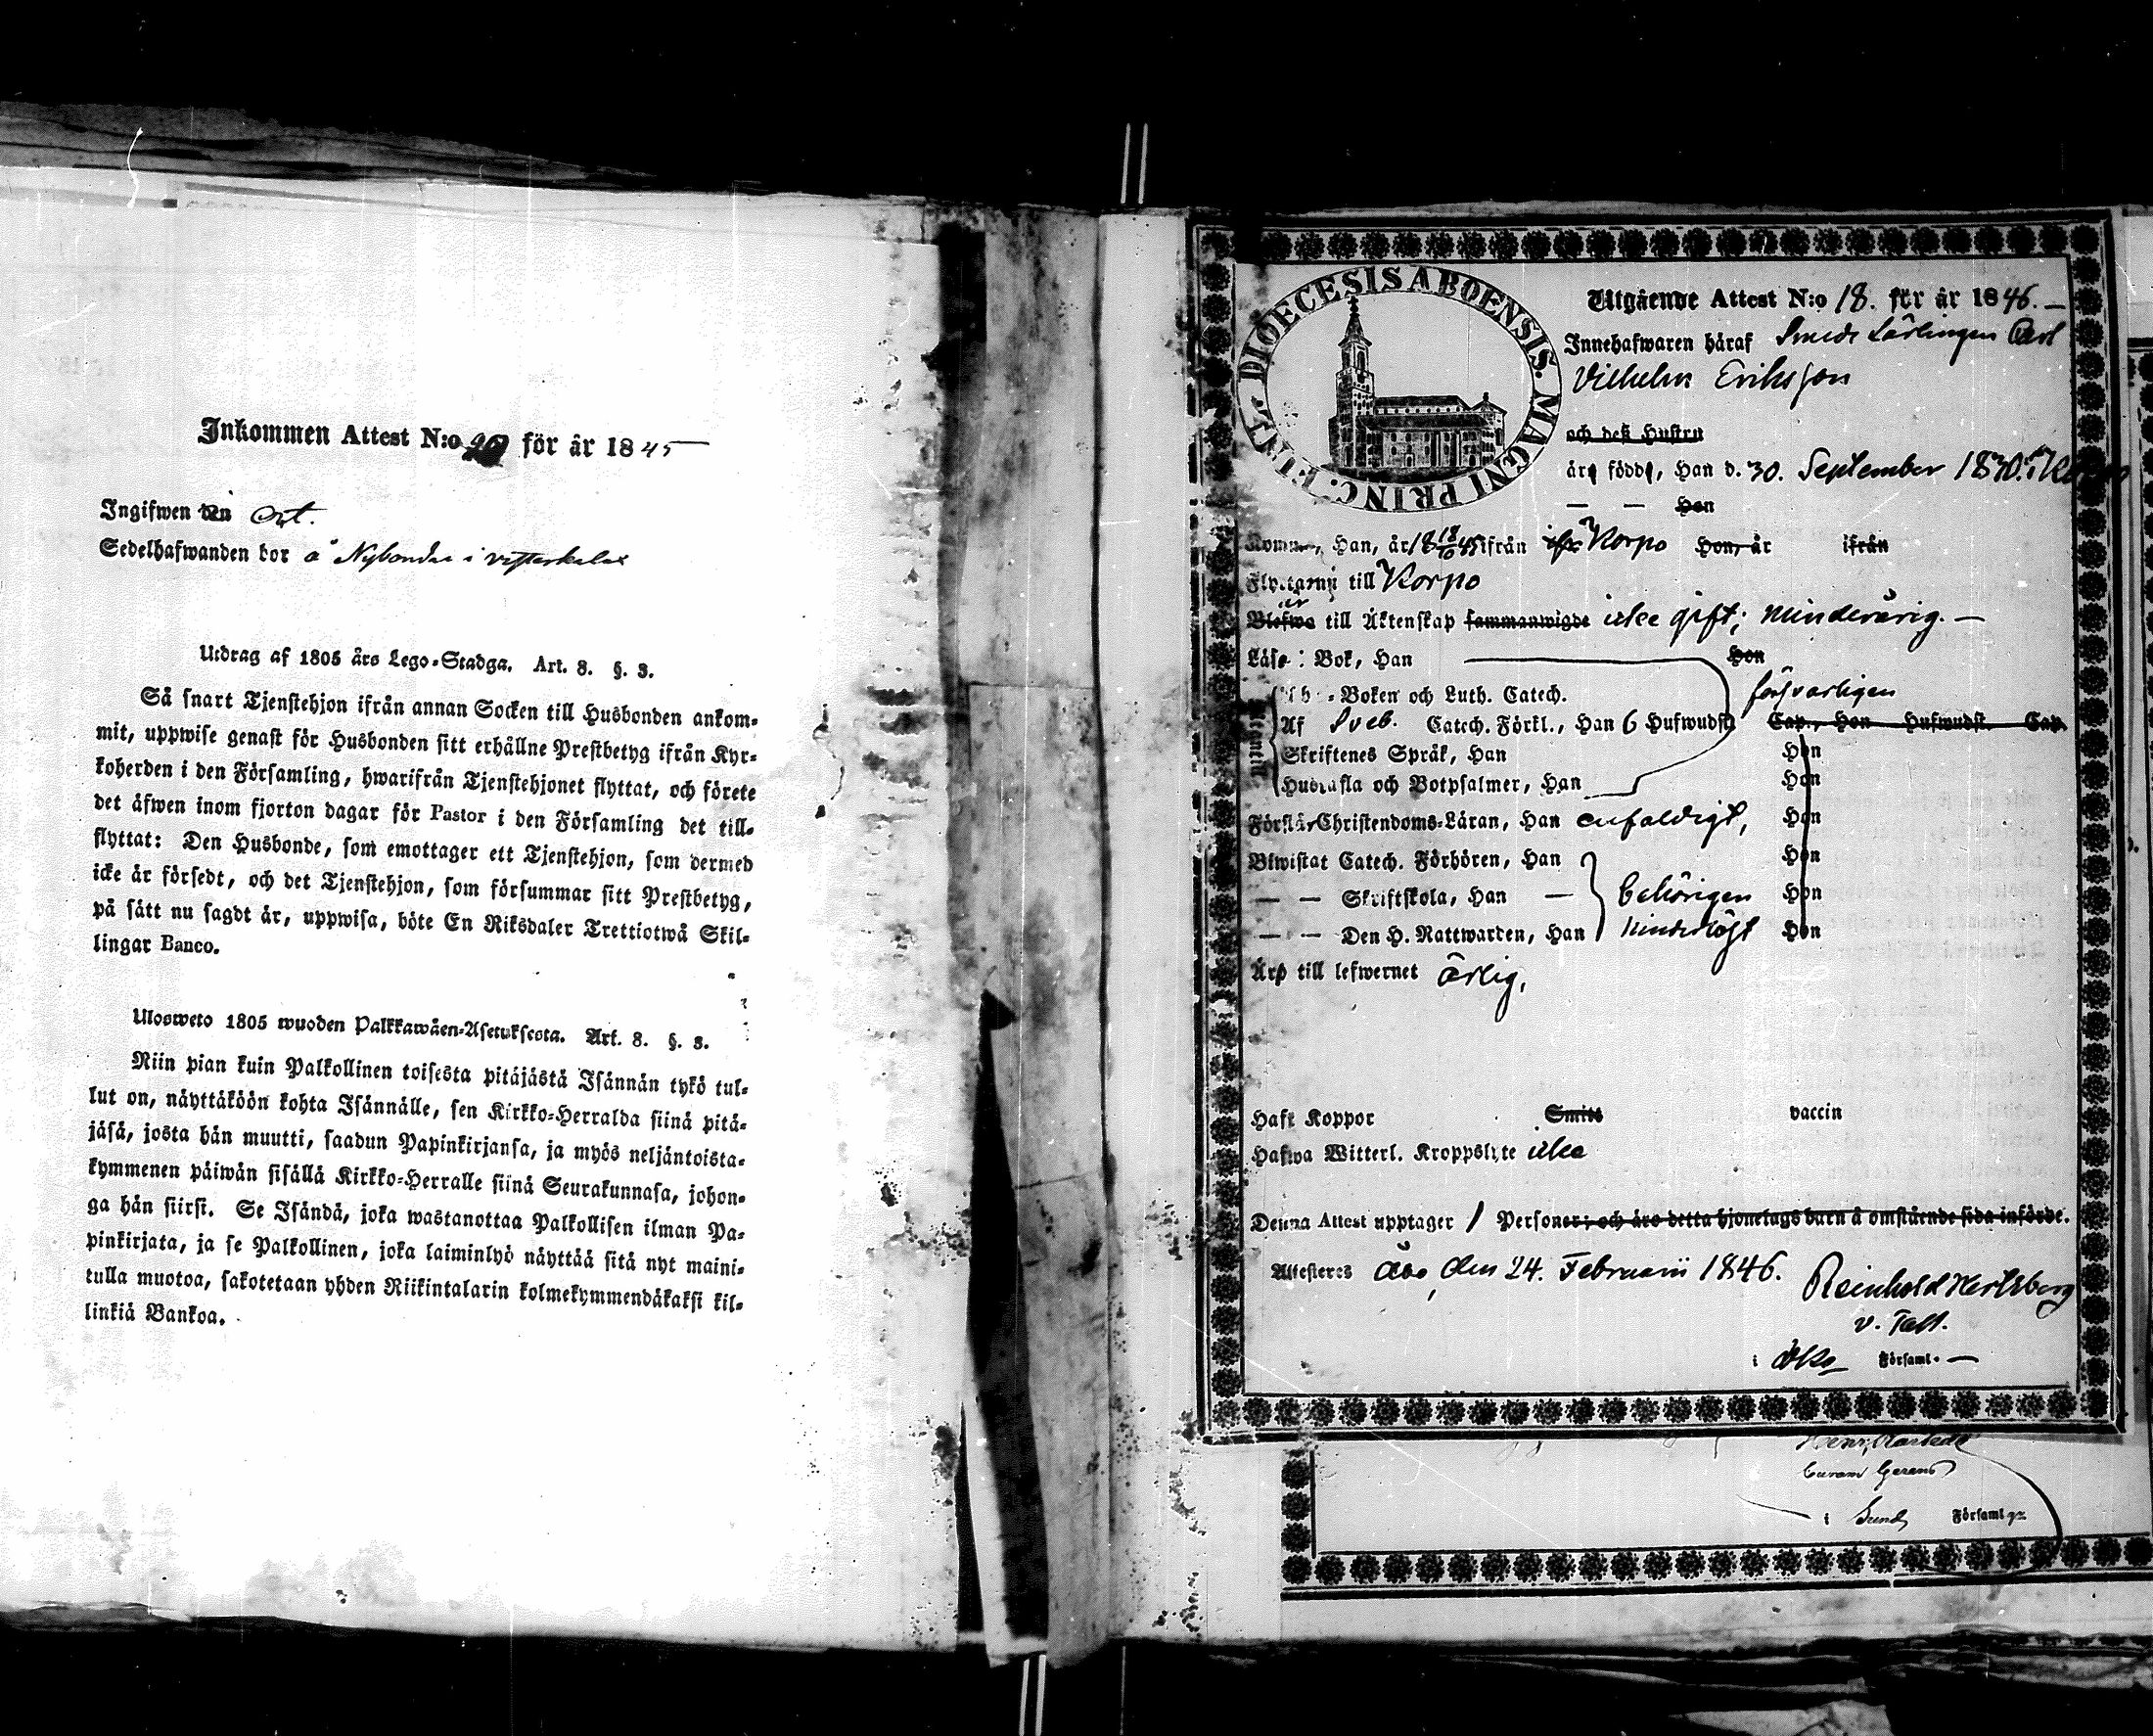 Inkommen Attest N:o 20 för år 1845
Ingifwen den Oct.
Sedelhafwanden bor å Nybondas i
Utdrag af 1805 års Lego-Stadga. Art. 8. §. 3.
Så snart Tjenstehjon ifrån annan Socken till Husbonden ankom-
mit, uppwise genast för Husbonden sitt erhållne Prestbetyg ifrån Kyr-
koherden i den Församling, hwarifrån Tjenstehjonet flyttat, och förete
det äfwen inom fjorton dagar för Pastor i den Församling det till-
flyttat: Den Husbonde, som emottager ett Tjenstehjon, som dermed
icke är försedt, och det Tjenstehjon, som försummar sitt Prestbetyg,
på sätt nu sagdt är, uppwisa, böte En Riksdaler Trettiotwå Skil-
lingar Banco.
Ulosweto 1805 wuoden Palkkawäen-Asetuksesta. Art. 8. §. 3.
Niin pian kuin Palkollinen toisesta pitäjästä Isännän tykö tul-
lut on, näyttäköön kohta Isännälle, sen Kirkko-Herralda siinä pitä-
jäsä, josta hän muutti, saadun Papinkirjansa, ja myös neljäntoista-
kymmenen päiwän sisällä Kirkko-Herralle siinä Seurakunnasa, johon-
ga hän siirsi. Se Isändä, joka wastanottaa Palkollisen ilman Pa-
pinkirjata, ja se Palkollinen, joka laiminlyö näyttää sitä nyt maini-
tulla muotoa, sakotetaan yhden Riikintalarin kolmekymmendäkaksi kil-
linkiä Bankoa.
DIOECESIS ABOENSIS. MAGNI PRINC. FINL.
Utgående Attest N:o 18. för år 1846.
Innehafwaren häraf Smeds Lärlingen Carl
Vilhelm Eriksson
och deß Hustru
äro födde, Han d. 30. September 1830. i Korpo
— — Hon
Komne, Han, år 18 18/10 45 ifrån Korpo Hon, år ifrån
Flyttarny till Korpo
Blefwo är till Äktenskap sammanwigde icke gift; minderårig. —
Läse: Bok, Han Hon
Abc-Boken och Luth. Catech. försvarligen
Af Sveb. Catech. Förkl., Han 6 Hufwudst. Cap., Hon Hufwudst. Cap.
Skriftenes Språk, Han Hon
Hustafla och Botpsalmer, Han Hon
Förstår Christendoms-Läran, Han enfaldigt, Hon
Biwistat Catech. Förhören, Han Hon
— — Skriftskola, Han — behörigen Hon
— — Den H. Nattwarden, Han hinderlöst Hon
Äro till lefwernet ärlig,
Haft Koppor Smitt vaccin
Hafwa Witterl. Kroppslyte icke
Denna Attest upptager 1 Personer; och äro detta hjonelags barn å omstående sida införde.
Attesteras Åbo, den 24. Februarii 1846. Reinhold Hertzberg
v. Past.
i Åbo Församl. —
Curam Gerens
i Sund Församlg: